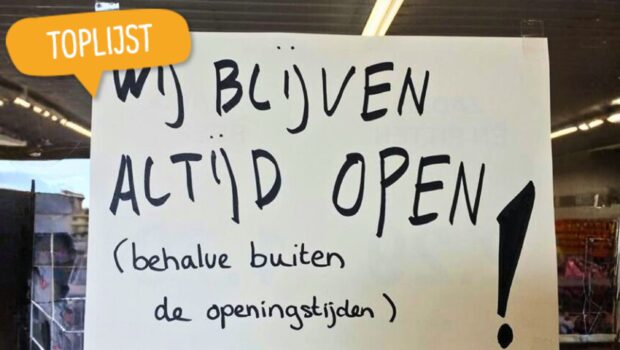 TOPLIJST
WIJ BLIJVEN
ALTIJD OPEN!
(behalve buiten
de openingstijden)